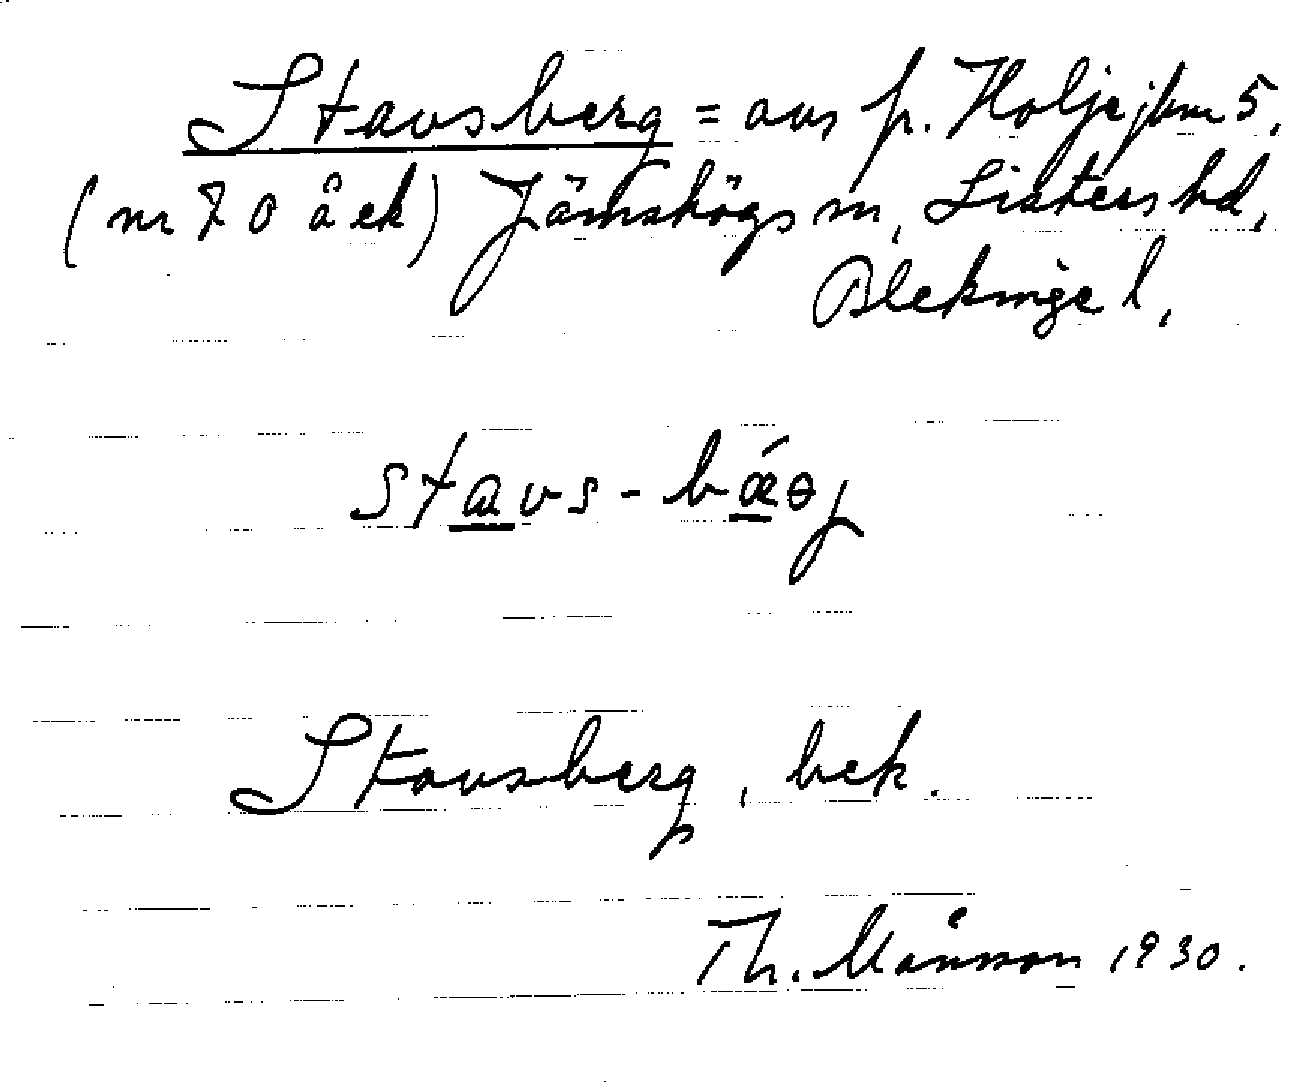 Stavsberg = avs p. Holje jbm 5,
(nr 70 å ek) Jämshögs sn, Listers hd,
Blekinge l,
stavs-bǽəj
Stavsberg, bek.
Th. Månsson 1930.